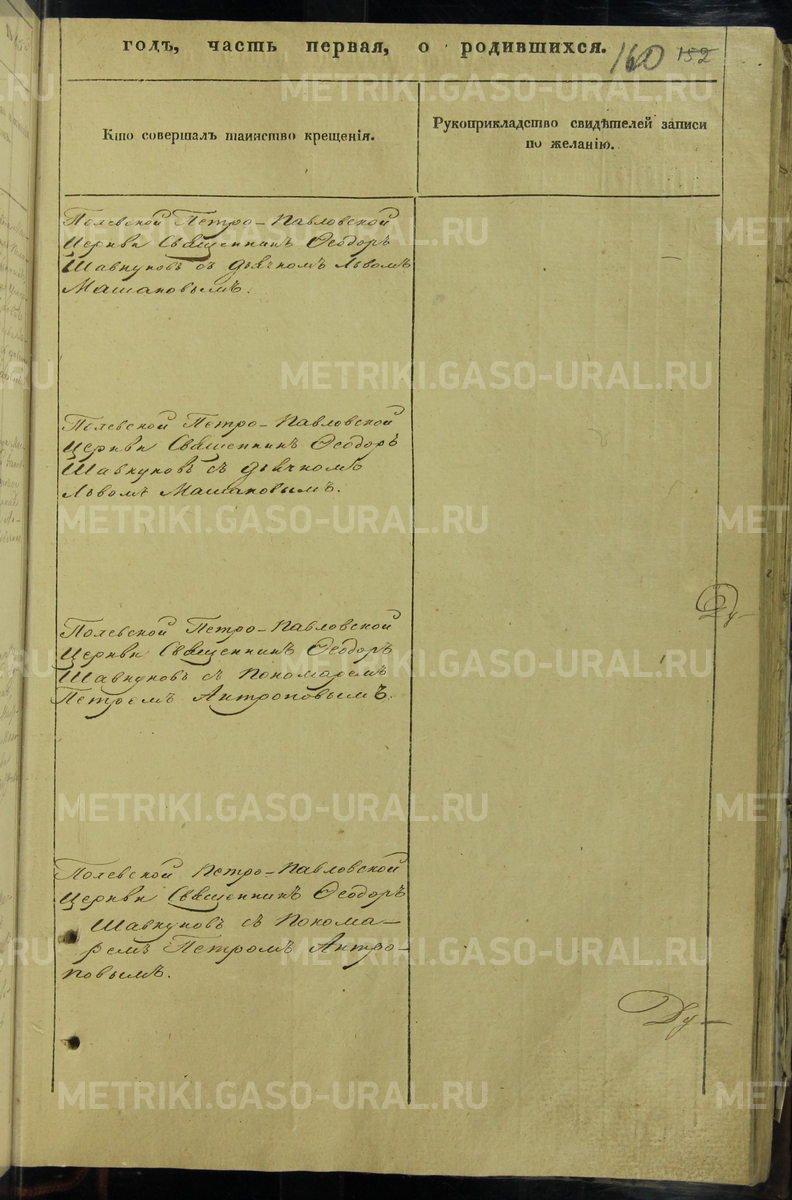 годъ, часть первая, о родившихся. 160 152
Кто совершалъ таинство крещенія.
Рукоприкладство свидѣтелей записи
по желанію.
Полевской Петро-Павловской
Церкви Священникъ Ѳеодоръ
Шавкуновъ съ дьячкомъ Львомъ
Машановымъ.
Полевской Петро-Павловской
Церкви Священникъ Ѳеодоръ
Шавкуновъ съ дьячкомъ
Львомъ Машановымъ.
Полевской Петро-Павловской
Церкви Священникъ Ѳеодоръ
Шавкуновъ съ Пономаремъ
Петромъ Антроповымъ.
Полевской Петро-Павловской
Церкви Священникъ Ѳеодоръ
Шавкуновъ съ Понома-
ремъ Петромъ Антро-
повымъ.
Ду-
Ду-
METRIKI.GASO-URAL.RU